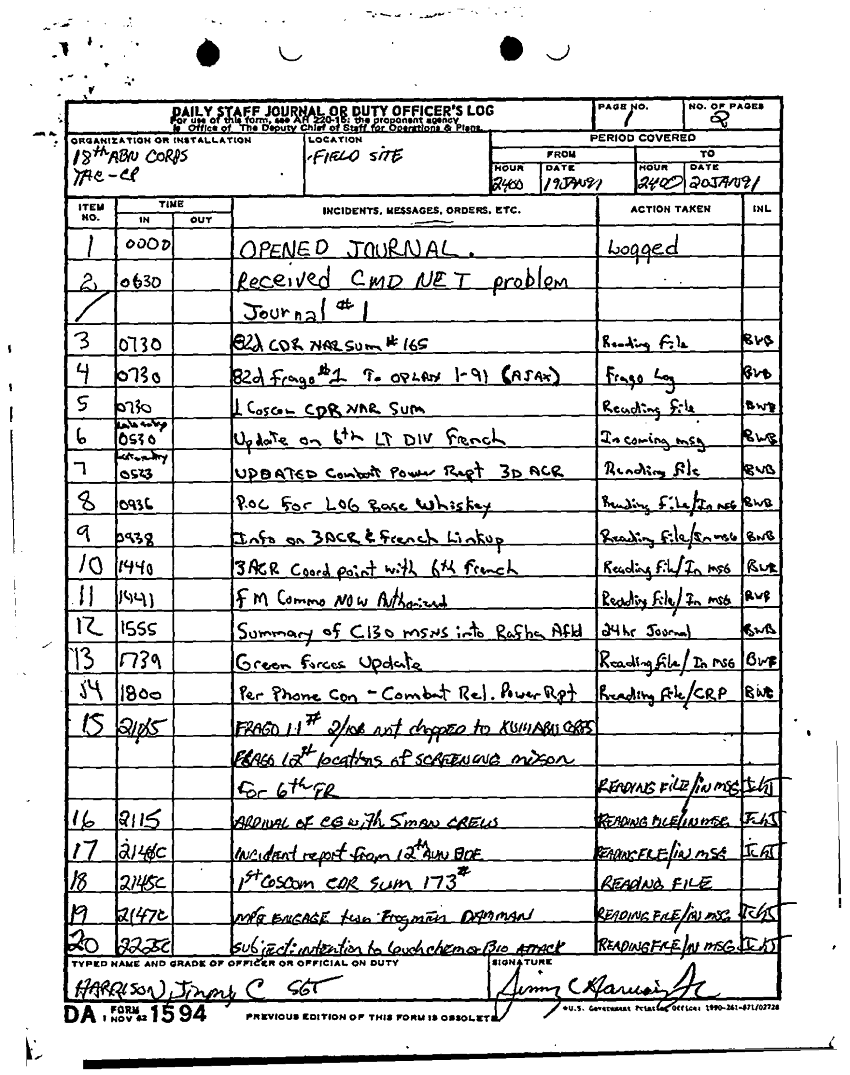 DAILY STAFF JOURNAL OR DUTY OFFICER'S LOG
For use of this form, see AR 220-15; the proponent agency
is Office of The Deputy Chief of Staff for Operations & Plans.
PAGE NO.
1
NO. OF PAGES
2
ORGANIZATION OR INSTALLATION
18th ABN CORPS
TAC-CP
LOCATION
FIELD SITE
PERIOD COVERED
FROM
TO
HOUR DATE HOUR DATE
2400 19JAN91 2400 20JAN91
ITEM NO. TIME IN OUT INCIDENTS, MESSAGES, ORDERS, ETC. ACTION TAKEN INL
1 0000 OPENED JOURNAL. Logged
2 0630 Received CMD NET problem
Journal #1
3 0730 82d CDR NAR Sum # 165 Reading File BWB
4 0730 82d Frago #1 To OPLAN 1-91 (AJAX) Frago Log BWB
5 0730 1 Coscom CDR NAR Sum Reading File BWB
6 late entry 0530 Update on 6th LT DIV French Incoming msg BWB
7 late entry 0523 UPDATED Combat Power Rept 3D ACR Reading File BWB
8 0936 P.OC For LOG Base Whiskey Reading File/In MSG BWB
9 0938 Info on 3ACR & French Linkup Reading File/In MSG BWB
10 1440 3ACR Coord point with 6th French Reading File/In MSG BWB
11 1441 FM Commo NOW Authorized Reading File/In MSG BWB
12 1555 Summary of C130 MSNS into Rafha Afld 24hr Journal BWB
13 1739 Green Forces Update Reading File/In MSG BWB
14 1800 Per Phone Con - Combat Rel. Power Rpt Reading File/CRP BWB
15 FRAGO 11# not chopped to ABN CORPS
FRAGO 12# locations of SCREENING
For 6th FR READING FILE/IN MSG
16 2115 of CG with 5 man CREWS READING FILE/IN MSG
17 Incident report from 12th AVN BDE READING FILE/IN MSG
18 2145C 1st COSCOM CDR Sum 173# READING FILE
19 2147C ENGAGE two DAMMAN READING FILE/IN MSG
20 2225C Subject: intention to chem or Bio ATTACK READING FILE/IN MSG
TYPED NAME AND GRADE OF OFFICER OR OFFICIAL ON DUTY
HARRISON, Jimmy C SGT
SIGNATURE
Jimmy C Harrison Jr
DA FORM 1 NOV 62 1594
PREVIOUS EDITION OF THIS FORM IS OBSOLETE
U.S. Government Printing Office: 1990-261-871/02728